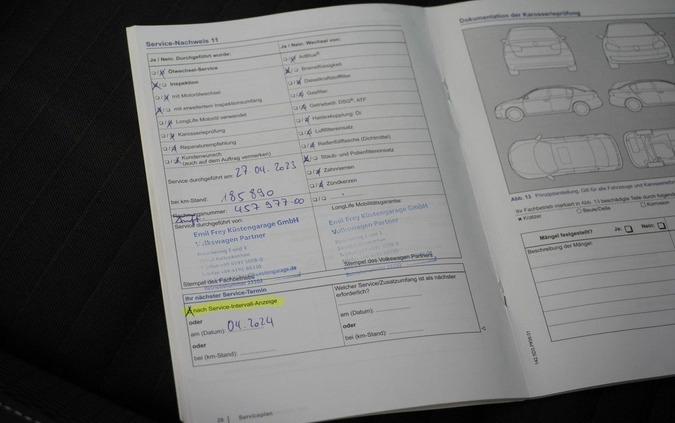 Service-Nachweis 11
Ja / Nein: Durchgeführt wurde:
Ölwechsel-Service
Inspektion
mit Motorölwechsel
mit erweitertem Inspektionsumfang
LongLife Motoröl verwendet
Karosserieprüfung
Reparaturempfehlung
Kundenwunsch
(auch auf dem Auftrag vermerken)
Service durchgeführt am: 27.04.2023
bei km-Stand: 185890
Rechnungsnummer: 457 977-00
Service durchgeführt von:
Emil Frey Küstengarage GmbH
Volkswagen Partner
Stempel des Fachbetriebs
Ja / Nein: Wechsel von:
AdBlue®
Bremsflüssigkeit
Dieselkraftstofffilter
Gasfilter
Getriebeöl: DSG®, ATF
Haldexkupplung: Öl
Luftfiltereinsatz
Reifenfüllflasche (Dichtmittel)
Staub- und Pollenfiltereinsatz
Zahnriemen
Zündkerzen
LongLife Mobilitätsgarantie:
Emil Frey Küstengarage GmbH
Volkswagen Partner
Stempel des Volkswagen Partners
Ihr nächster Service-Termin
nach Service-Intervall-Anzeige
oder
am (Datum): 04.2024
oder
bei (km-Stand):
Welcher Service/Zusatzumfang ist als nächster
erforderlich?
am (Datum):
bei (km-Stand):
26 Serviceplan
Dokumentation der Karosserieprüfung
Abb. 13 Prinzipdarstellung: Gilt für alle Fahrzeuge und Karosserie
Ihr Fachbetrieb markiert in Abb. 13 beschädigte Teile durch
Kratzer
Beule/Delle
Korrosion
Mängel festgestellt? Ja: Nein:
Beschreibung der Mängel: